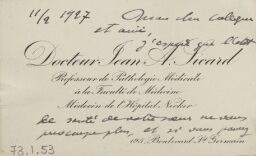 11/2 1927 Mon cher collègue
et ami,
j'espère que l'état
Docteur Jean A. Sicard
Professeur de Pathologie Médicale
à la Faculté de Médecine
Médecin de l'Hôpital Necker
de santé de notre ne vous
plus, et si vous
195, Boulevard St Germain
73.1.53